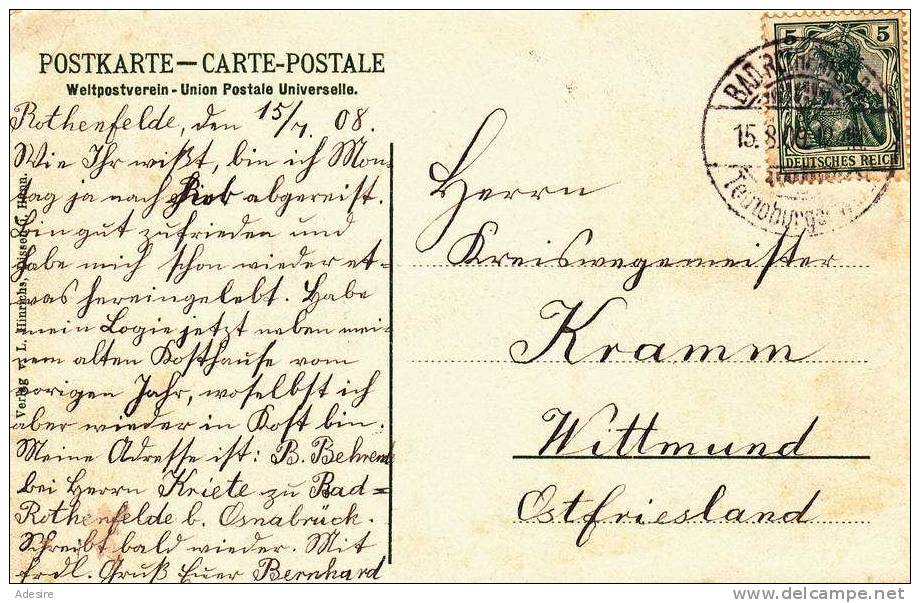 POSTKARTE — CARTE-POSTALE
Weltpostverein - Union Postale Universelle.
Rothenfelde, den 15/7. 08.
Wie Ihr wißt, bin ich Mon-
tag ja nach abgereist.
Bin gut zufrieden und
habe mich schon wieder et-
was hereingelebt. Habe
mein Logie jetzt neben mei-
nem alten Kosthause vom
vorigen Jahr, woselbst ich
aber wieder in Kost bin.
Meine Adresse ist: B. Behrends
bei Herrn Kriete zu Bad-
Rothenfelde b. Osnabrück.
Schreibt bald wieder. Mit
frdl. Gruß Euer Bernhard
Verlag v. L. Hinrichs, Dissen
Herrn
Kreiswegemeister
Kramm
Wittmund
Ostfriesland
5 5
DEUTSCHES REICH
BAD
15.8.08
Teutoburger
Adesire
delcampe.net